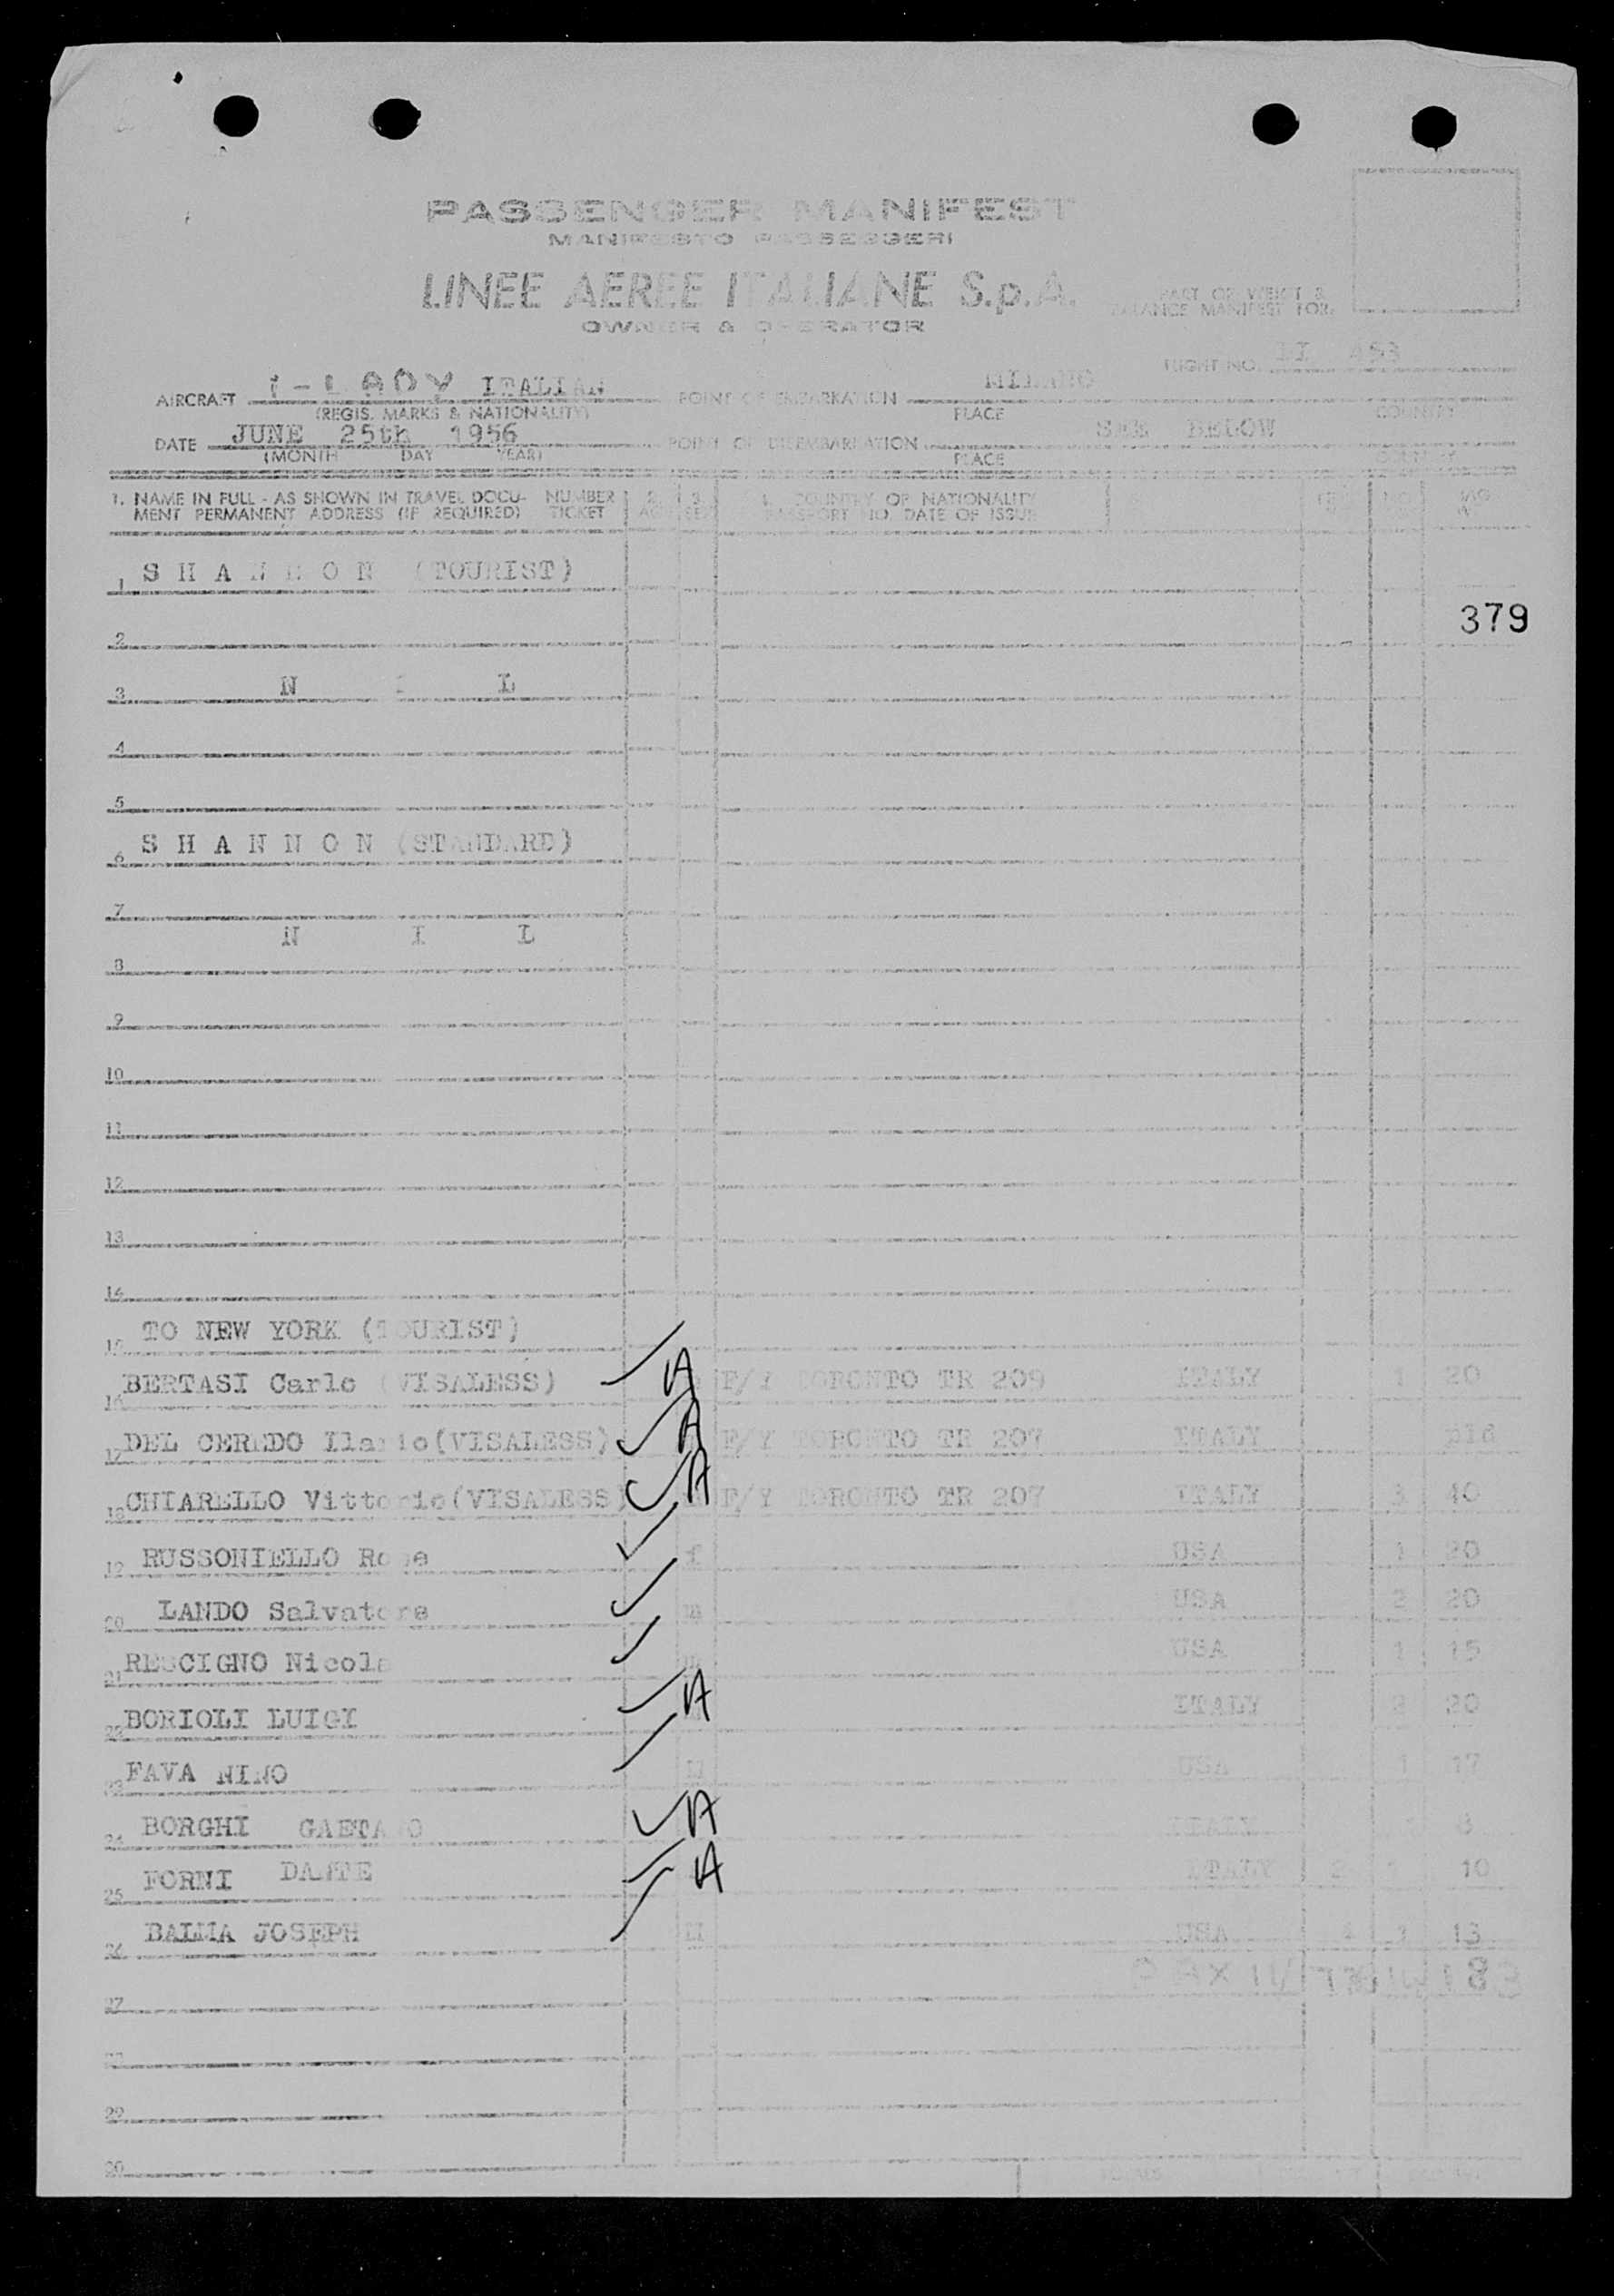 PASSENGER MANIFEST
MANIFESTO PASSEGGERI
LINEE AEREE ITALIANE S.p.A.
OWNER & OPERATOR
PART OF WEIGHT &
BALANCE MANIFEST FOR:
FLIGHT NO. LI 453
AIRCRAFT I-LADY ITALIAN POINT OF EMBARKATION MILANO
(REGIS. MARKS & NATIONALITY) PLACE COUNTRY
DATE JUNE 25th 1956 POINT OF DISEMBARKATION SEE BELOW
(MONTH DAY YEAR) PLACE COUNTRY
1. NAME IN FULL - AS SHOWN IN TRAVEL DOCU- NUMBER 2. 3. 4. COUNTRY OF NATIONALITY NO. BAG.
MENT PERMANENT ADDRESS (IF REQUIRED) TICKET AGE SEX PASSPORT NO. DATE OF ISSUE
1 S H A N N O N (TOURIST)
379
2
3 N I L
4
5
6 S H A N N O N (STANDARD)
7
N I L
8
9
10
11
12
13
14
15 TO NEW YORK (TOURIST)
16 BERTASI Carlo (VISALESS) A F/Y TORONTO TR 209 ITALY 1 20
17 DEL CEREDO Ilario (VISALESS) A F/Y TORONTO TR 207 ITALY
18 CHIARELLO Vittorio (VISALESS) A F/Y TORONTO TR 207 ITALY 3 40
19 RUSSONIELLO Rose f USA 1 20
20 LANDO Salvatore M USA 2 20
21 RESCIGNO Nicola USA 1 15
22 BORIOLI LUIGI A ITALY 2 20
23 FAVA NINO USA 1 17
24 BORGHI GAETANO A ITALY 8
25 FORNI DANTE A ITALY 10
26 BALMA JOSEPH USA 13
PAX 11/ 183
27
28
29
30